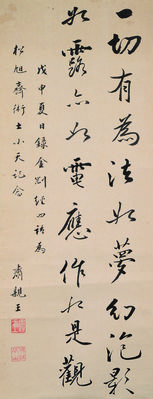 一切有為法如夢幻泡影
如露亦如電應作如是觀
戊申夏日錄金剛經四語為
松旭齋術士小天記念
肅親王